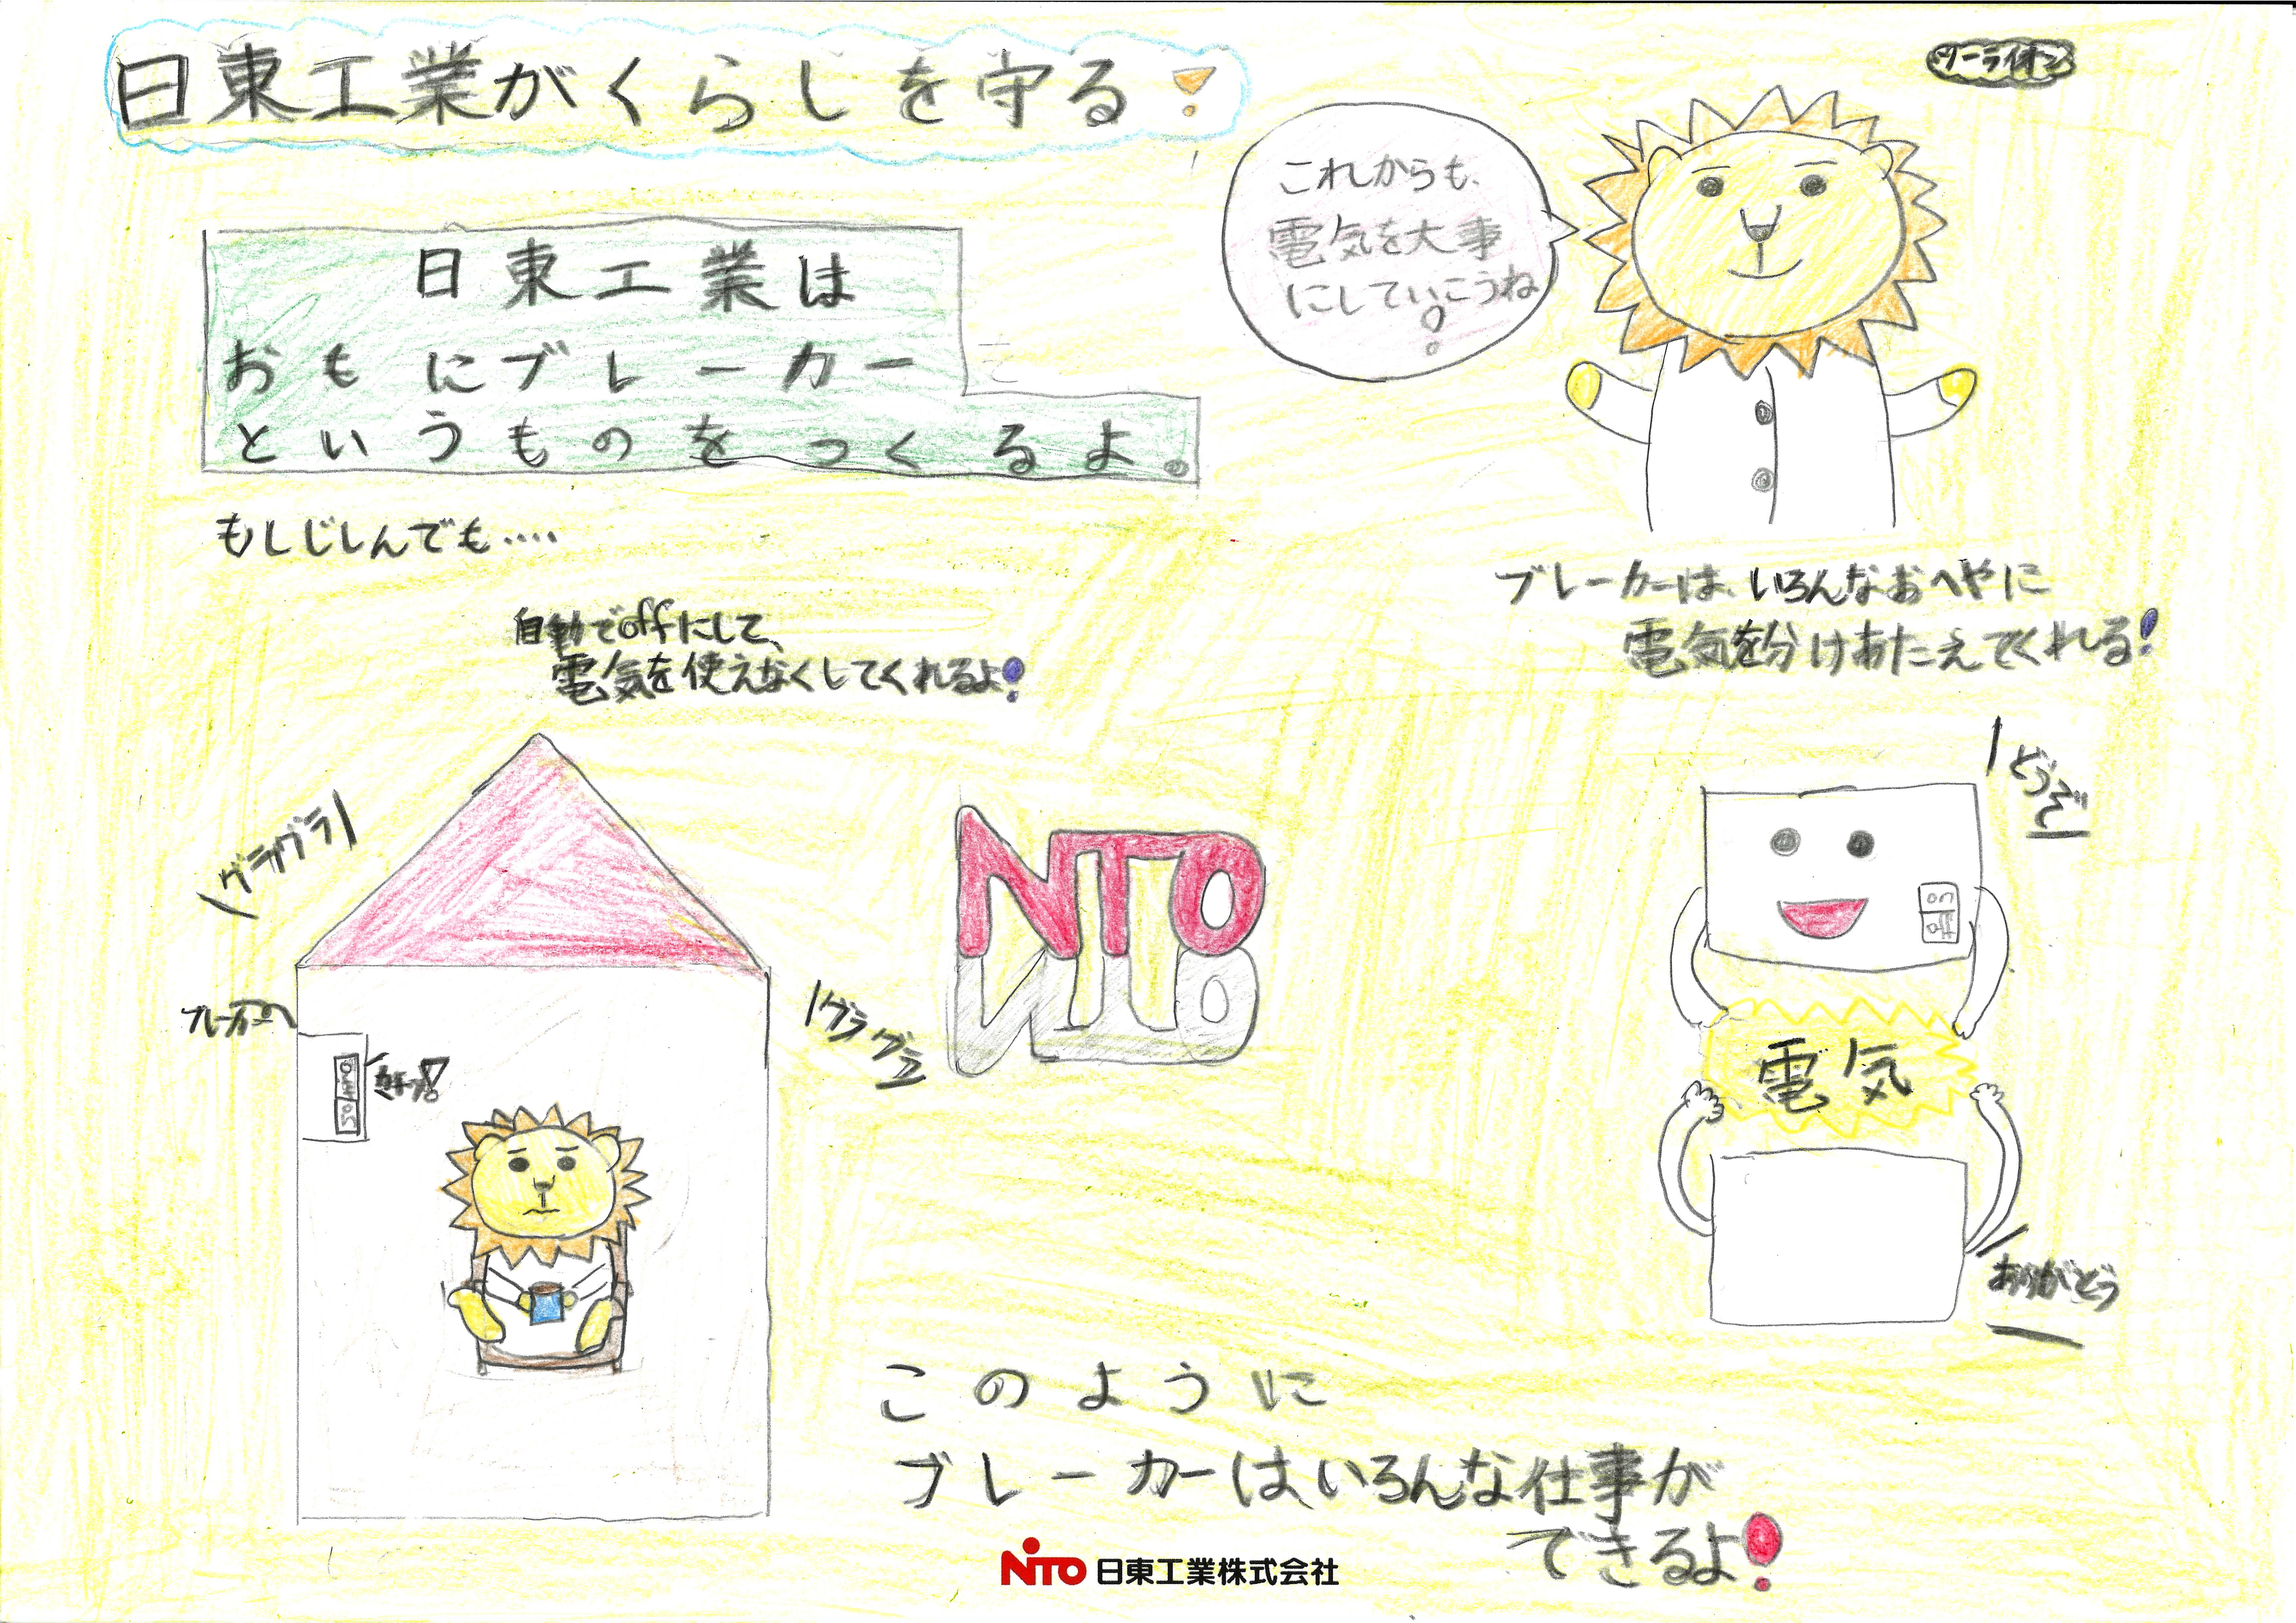 日東工業がくらしを守る!
ツーライオン
これからも、
電気を大事
にしていこうね
!
日東工業は
おもにブレーカー
というものをつくるよ。
もしじしんでも‥‥
自動でoffにして、
電気を使えなくしてくれるよ!
ブレーカーは、いろんなおへやに
電気を分けあたえてくれる!
グラグラ
ブレーカー
カチッ!
グラグラ
NTO
どうぞ
on
off
電気
ありがとう
このように
ブレーカーは、いろんな仕事が
できるよ!
NITO 日東工業株式会社